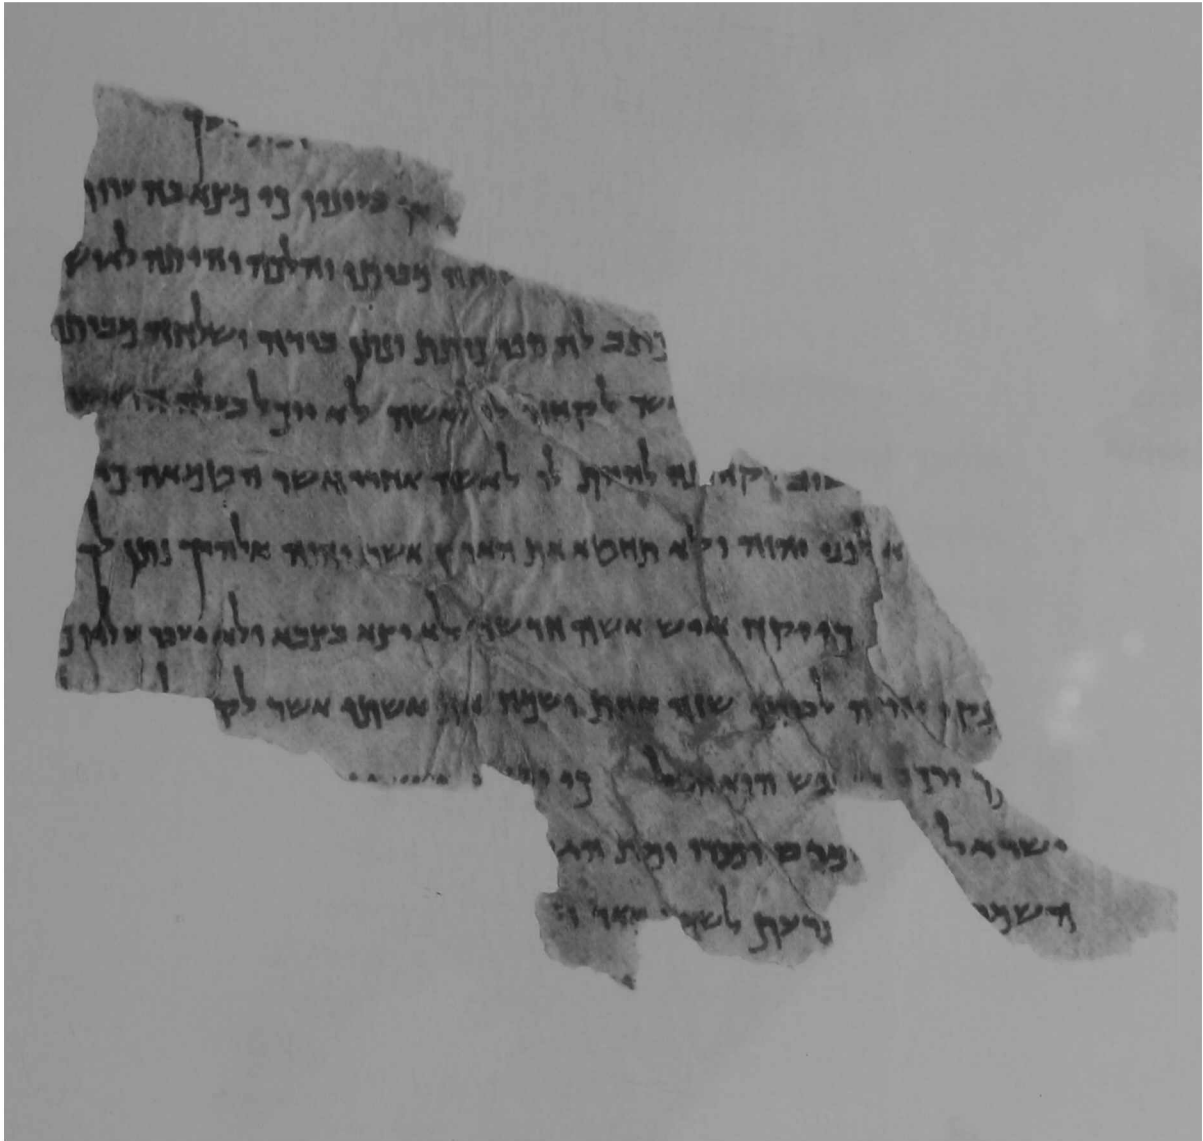 בעיניו כי מצא בה ערות
מביתו והלכה והיתה לאיש
כתב לה ספר כריתת ונתן בידה ושלחה מביתו
אשר לקחה לו לאשה לא יוכל בעלה
להיות לו לאשה אחרי אשר הטמאה כי
לפני יהוה ולא תחטא את הארץ אשר יהוה אלהיך נתן לך
כי יקח איש אשה חדשה לא יצא בצבא ולא יעבר עליו
נקי יהיה לביתו שנה אחת ושמח את אשתו אשר לק
ורכב נפש הוא חבל כי
ישראל ומכרו ומת
השמר רעת לשמר מאד